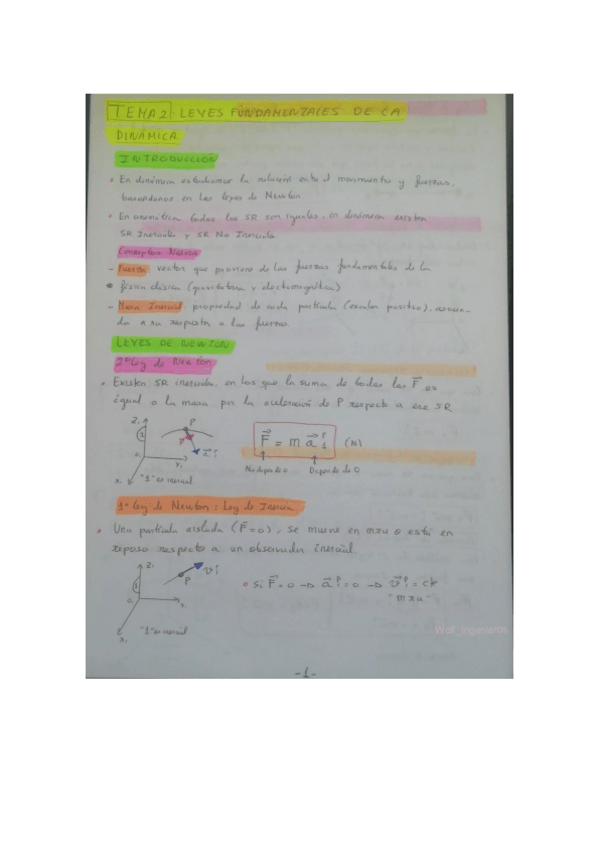 TEMA 2. LEYES FUNDAMENTALES DE LA
DINÁMICA
INTRODUCCIÓN
• En dinámica estudiamos la relación entre el movimiento y fuerzas,
basandonos en las leyes de Newton.
• En cinemática todos los SR son iguales, en dinámica existen
SR Inerciales y SR No Inerciales
Conceptos Nuevos
- Fuerza: vector que proviene de las fuerzas fundamentales de la
física clásica (gravitatoria y electromagnética)
- Masa Inercial: propiedad de cada partícula (escalar positivo), asocia-
da a su respuesta a las fuerzas.
LEYES DE NEWTON
2ª Ley de Newton
• Existen SR inerciales, en los que la suma de todas las F es
igual a la masa por la aceleración de P respecto a ese SR
Z₁ P
1 F a P 1
O₁ Y₁
X₁ "1" es inercial
F = m a P 1 (N)
No depende Depende de O
1ª Ley de Newton: Ley de Inercia
• Una partícula aislada (F=0), se mueve en mru o está en
reposo respecto a un observador inercial.
Z₁ v P 1
1 P
O₁ Y₁
X₁ "1" es inercial
• Si F = 0 → a P 1 = 0 → v P 1 = ck
"mru"
Wolf_Ingenieros
-1-